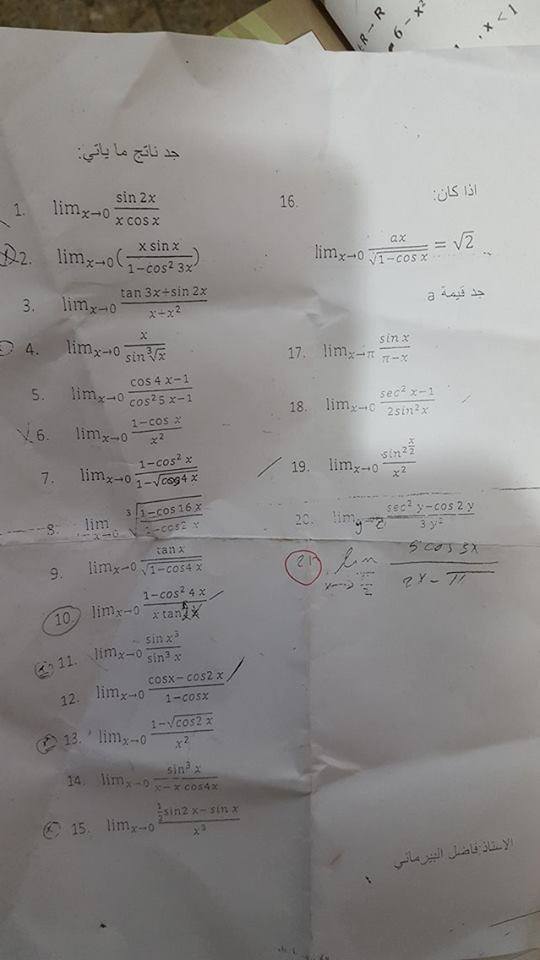 R – R
= 6 – x²
, x < 1
جد ناتج ما ياتي:
1. lim x→0 sin 2x / x cos x
2. lim x→0 (x sin x / 1−cos² 3x)
3. lim x→0 tan 3x+sin 2x / x+x²
4. lim x→0 x / sin ∛x
5. lim x→0 cos 4 x−1 / cos² 5 x−1
6. lim x→0 1−cos x / x²
7. lim x→0 1−cos² x / 1−√cos 4 x
8. lim x→0 ∛ 1−cos 16 x / 1−cos 2 x
9. lim x→0 tan x / √1−cos4 x
10. lim x→0 1−cos² 4 x / x tan
11. lim x→0 sin x³ / sin³ x
12. lim x→0 cosx−cos2 x / 1−cosx
13. lim x→0 1−√cos2 x / x²
14. lim x→0 sin³ x / x−x cos4x
15. lim x→0 ½sin2 x−sin x / x³
16. اذا كان:
lim x→0 ax / √1−cos x = √2
جد قيمة a
17. lim x→π sin x / π−x
18. lim x→0 sec² x−1 / 2sin² x
19. lim x→0 sin² x/2 / x²
20. lim y→0 sec² y−cos 2 y / 3 y²
21 lim x→ π/2 5 cos 3x / 2x − π
الاستاذ فاضل البيرماني